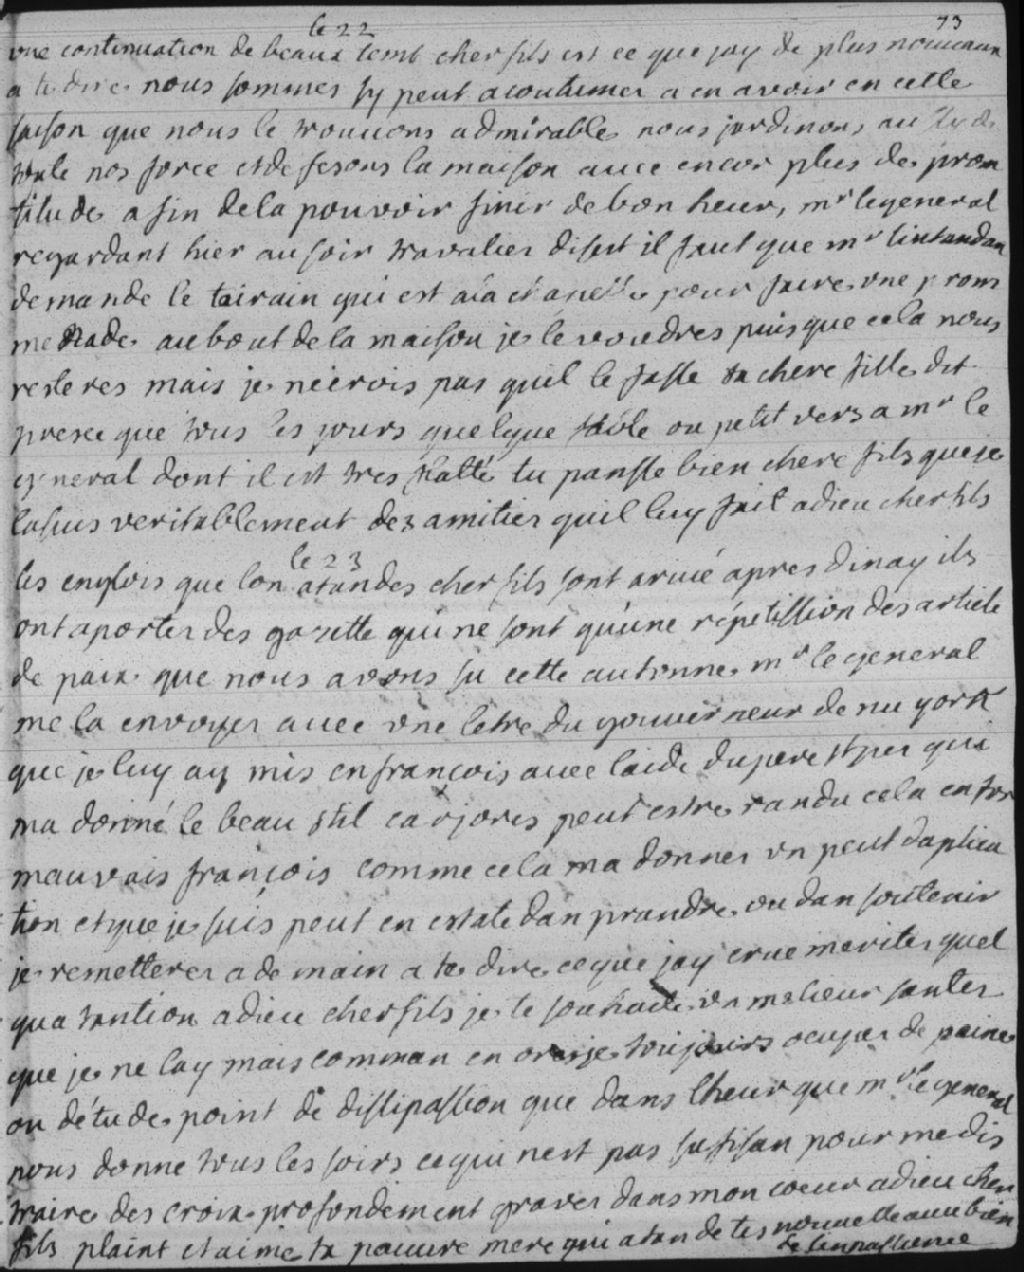 73
le 22
une continuation de beaux temt cher fils est ce que jay de plus nouveau
a te dire nous sommes sy peut acoutumer a en avoir en cette
saison que nous le trouvons admirable nous jardinons au
toute nos force et defesons la maison avec encor plus de prom
titude afin de la pouvoir finir de bon heur, mr legeneral
regardant hier au soir travalier disest il faut que mr lintandan
demande le tairain qui est a la pour faire une prom
menade au bout de la maison je le voudres puis que cela nous
resteres mais je ne crois pas quil le fasse ta chere fille dit
presce que tous les jours quelque fable ou petit vers a mr le
general dont il est tres flatté tu pansse bien chere fils que je
lasuis veritablement des amitier quil luy fait adieu cher fils
le 23
les englois que lon atandes cher fils sont arivé apres dinay ils
ont aporter des gazette qui ne sont qu'une répetission des article
de paix que nous avons su cette autonne mr le general
me la envoyer avec une letre du gouverneur de nu york
que je luy ay mis en françois avec laide du pere st per qui
ma donné le beau stil car jores peut estre randu cela en for
mauvais françois comme cela ma donner un peut daplica
tion et que je suis peut en estate dan prandre ou dan soutenir
je remetterer a demain a te dire ce que jay crue meriter quel
qua tantion adieu cher fils je te souhaite un melieur santer
que je ne lay mais comman en orai je toujours ocuper de paine
ou détude point de dissipassion que dans lheur que mr le general
nous donne tous les soirs ce qui nest pas sufisan pour me dis
traire des croix profondement graver dans mon coeur adieu cher
fils plaint et aime ta pauvre mere qui atan de tes nouvelle avec bien
de linpassience